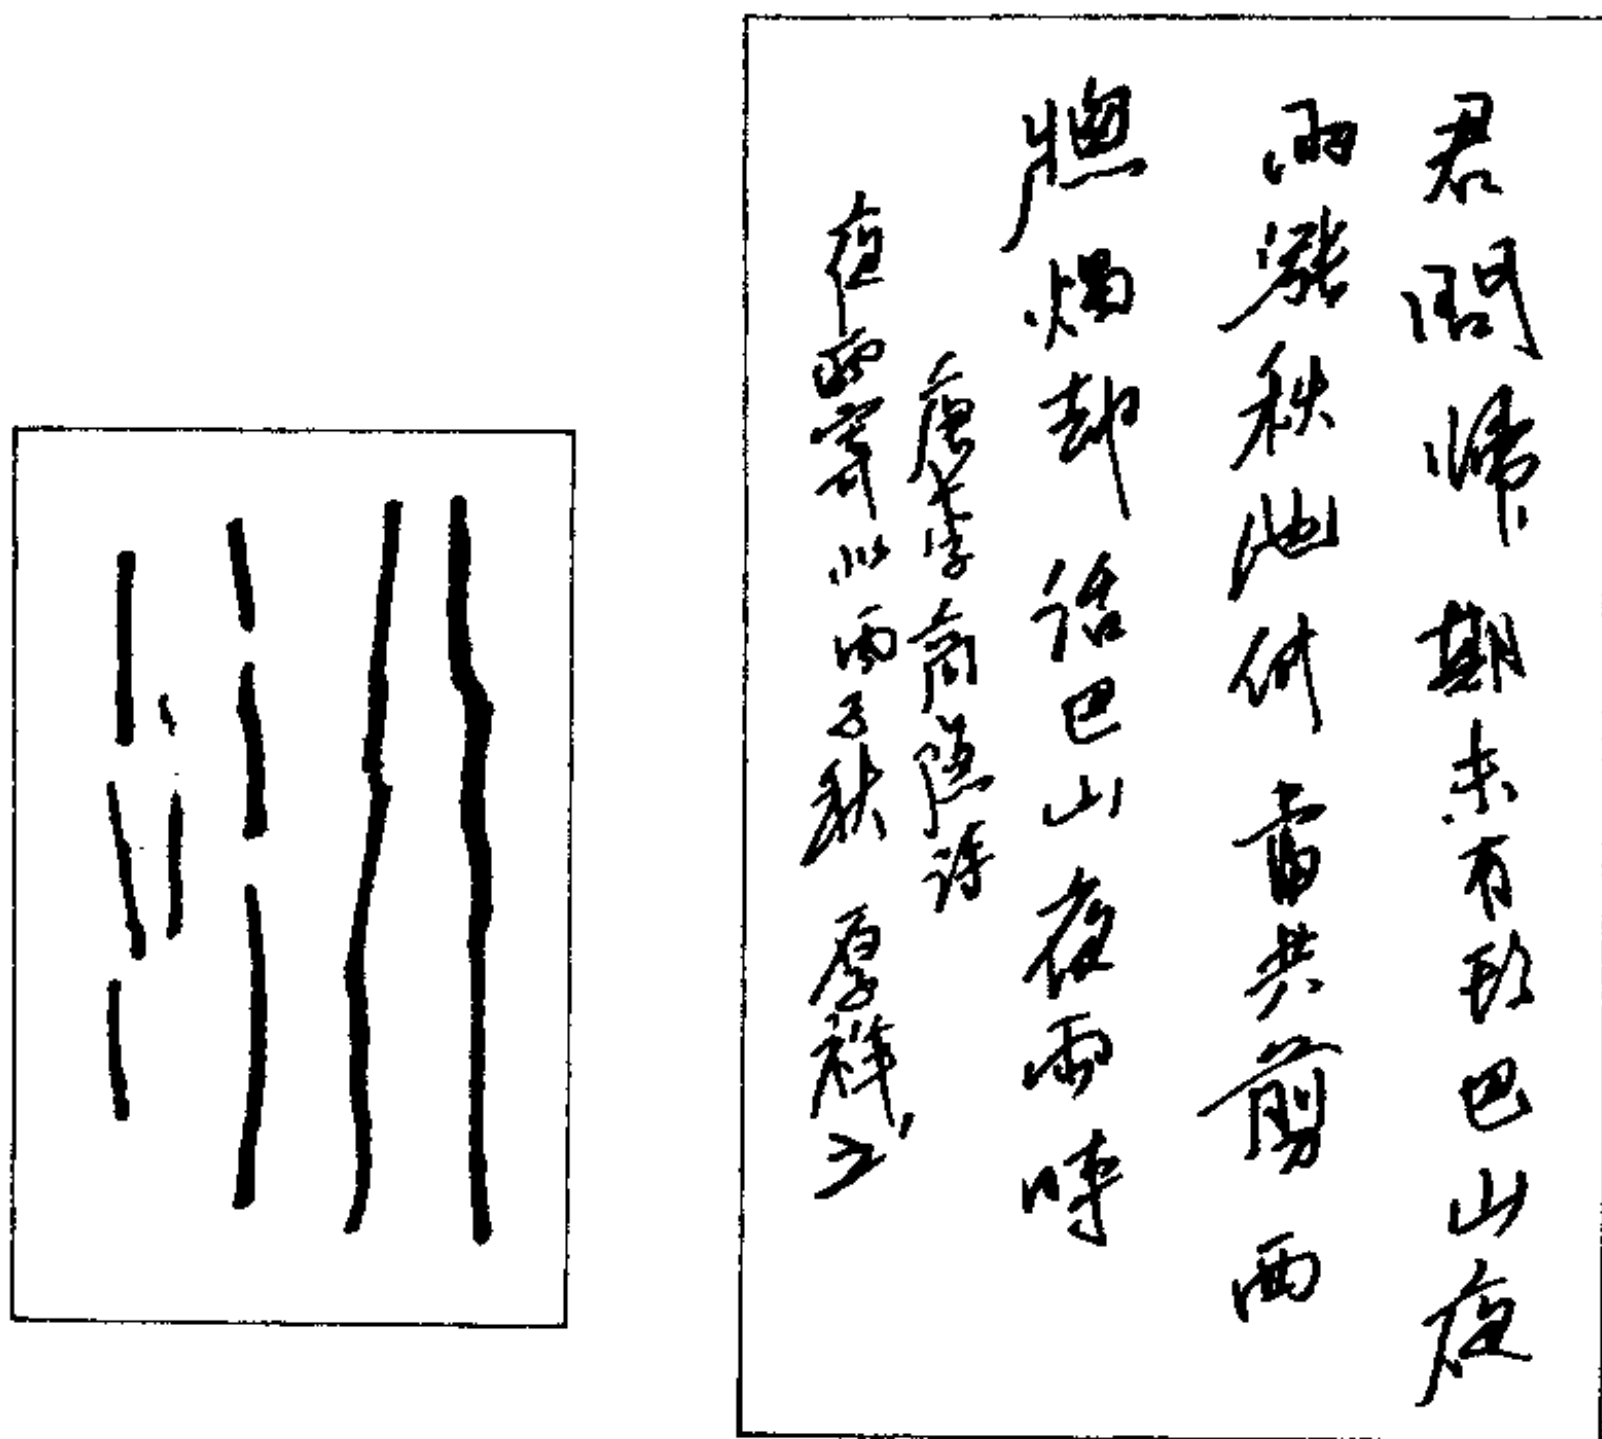 君問歸期未有期巴山夜
雨漲秋池何當共剪西
牕燭却話巴山夜雨時
唐李商隱詩
夜雨寄北 丙子秋 厚祥书